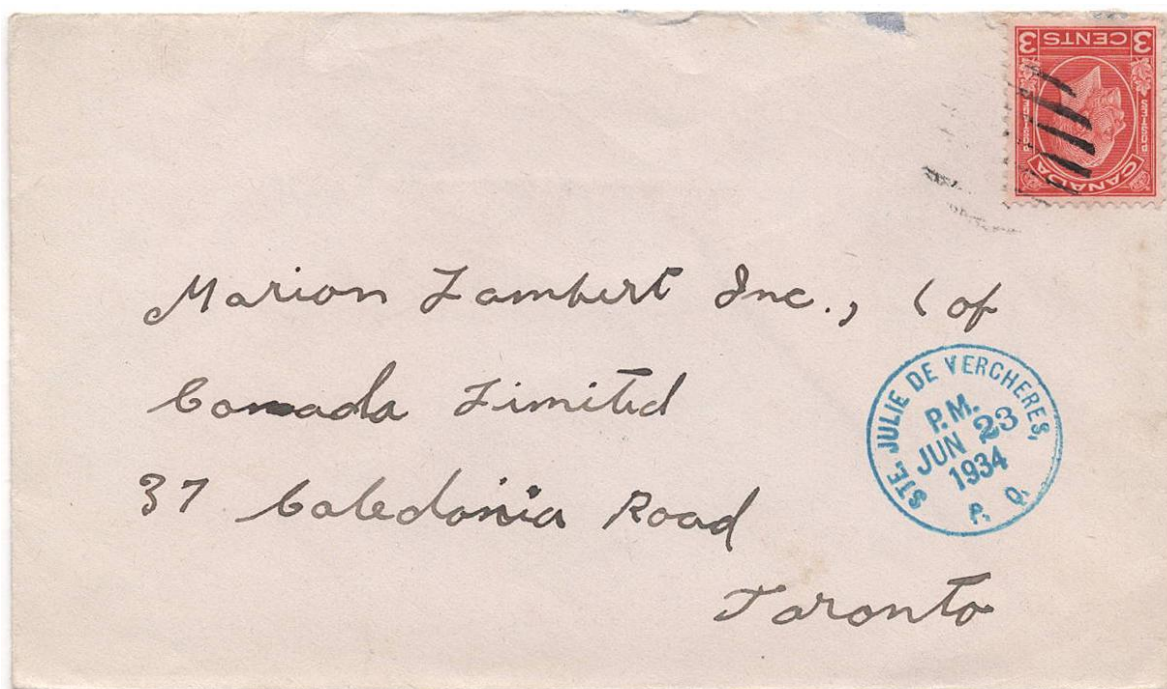 3 CENTS 3
POSTES
POSTAGE
CANADA
Marion Lambert Inc., (of
Canada Limited
37 Caledonia Road
Toronto
STE. JULIE DE VERCHERES,
P.M.
JUN 23
1934
P. Q.